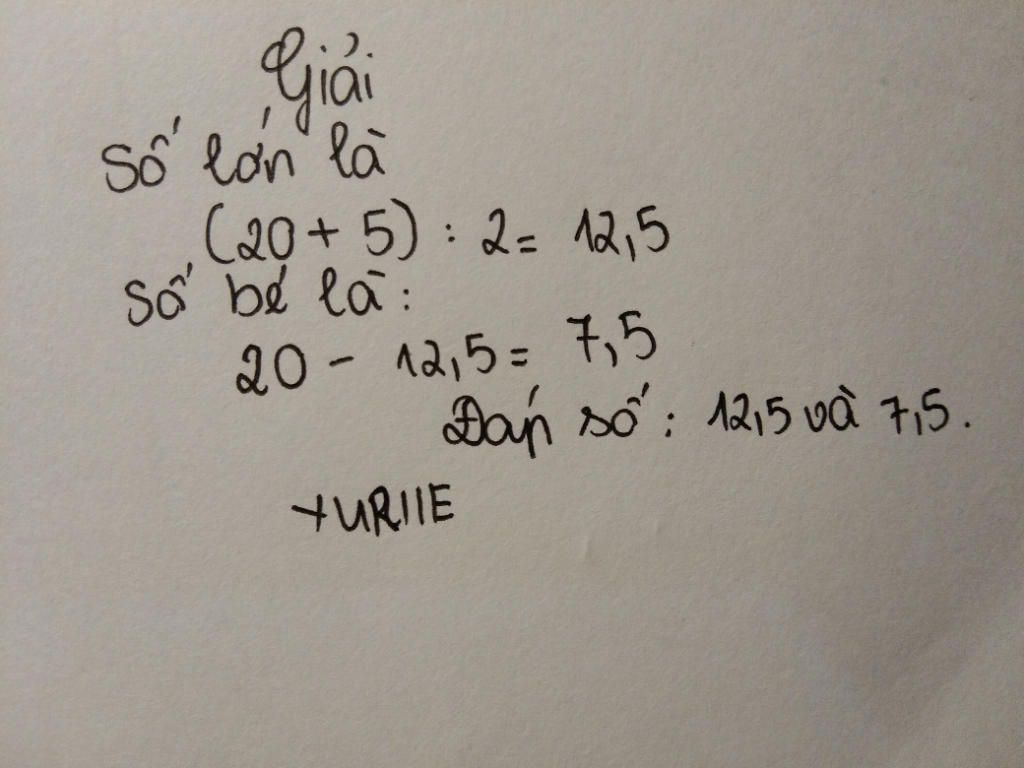 Giải
Số lớn là
(20 + 5) : 2 = 12,5
Số bé là :
20 - 12,5 = 7,5
Đáp số : 12,5 và 7,5.
+URIIE